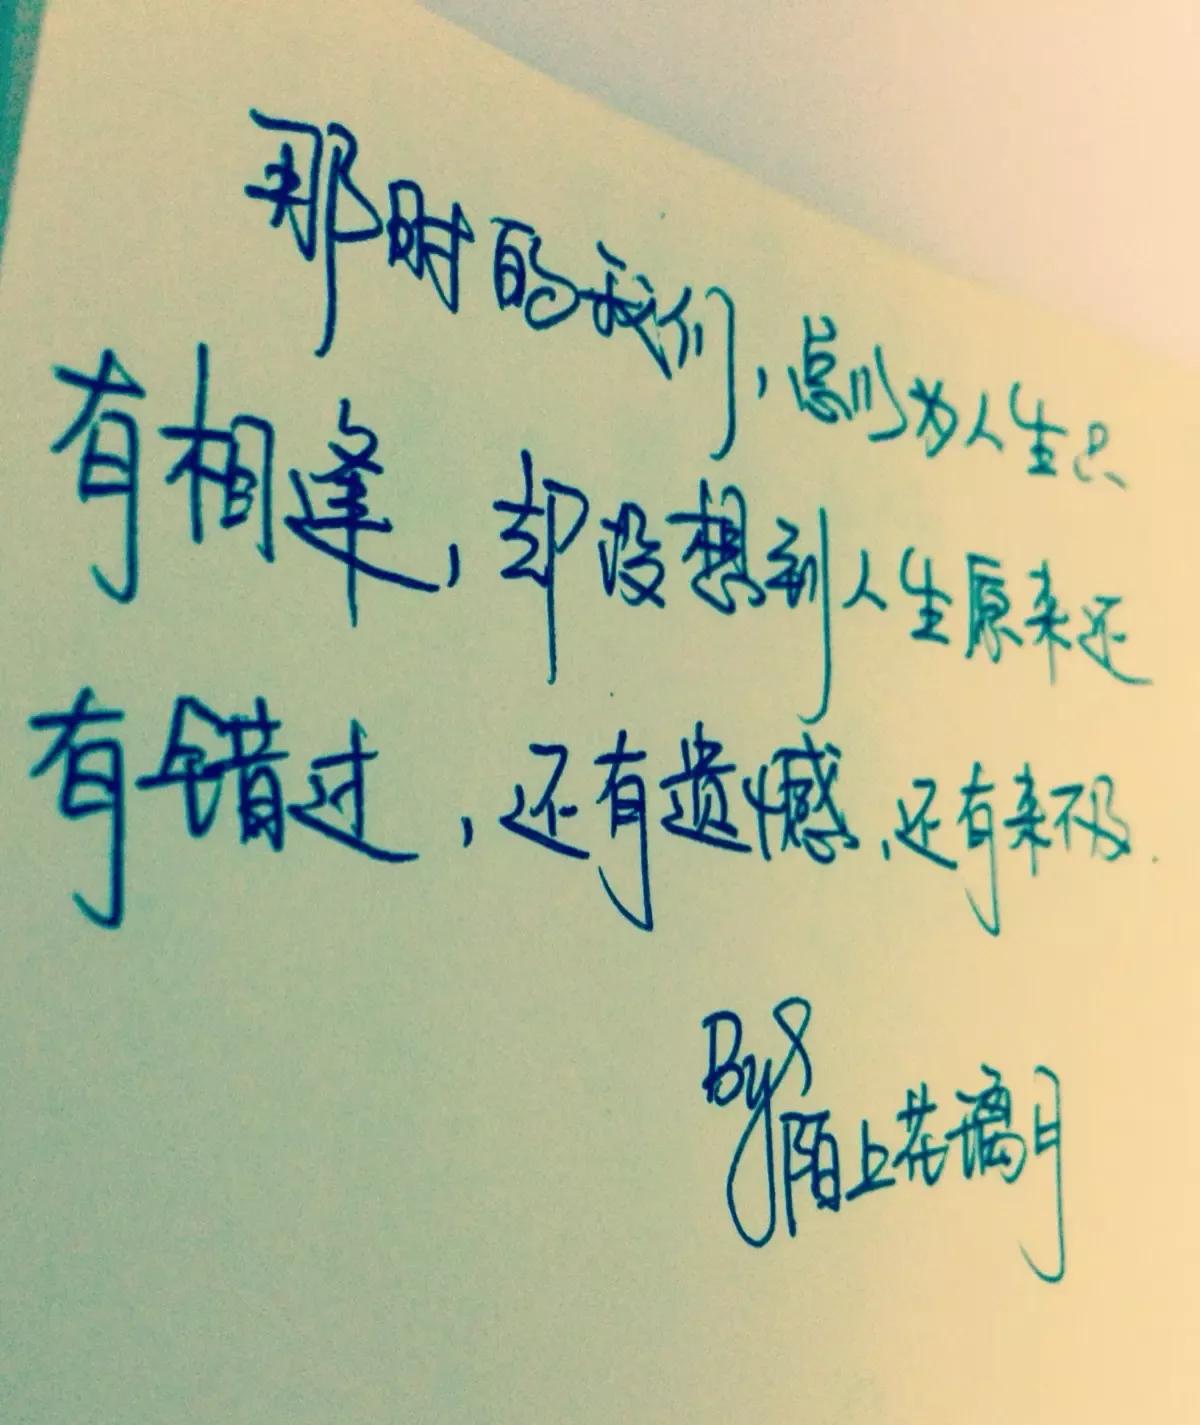 那时的我们，总以为人生只
有相逢，却没想到人生原来还
有错过，还有遗憾，还有来不及.
By
陌上花璃月